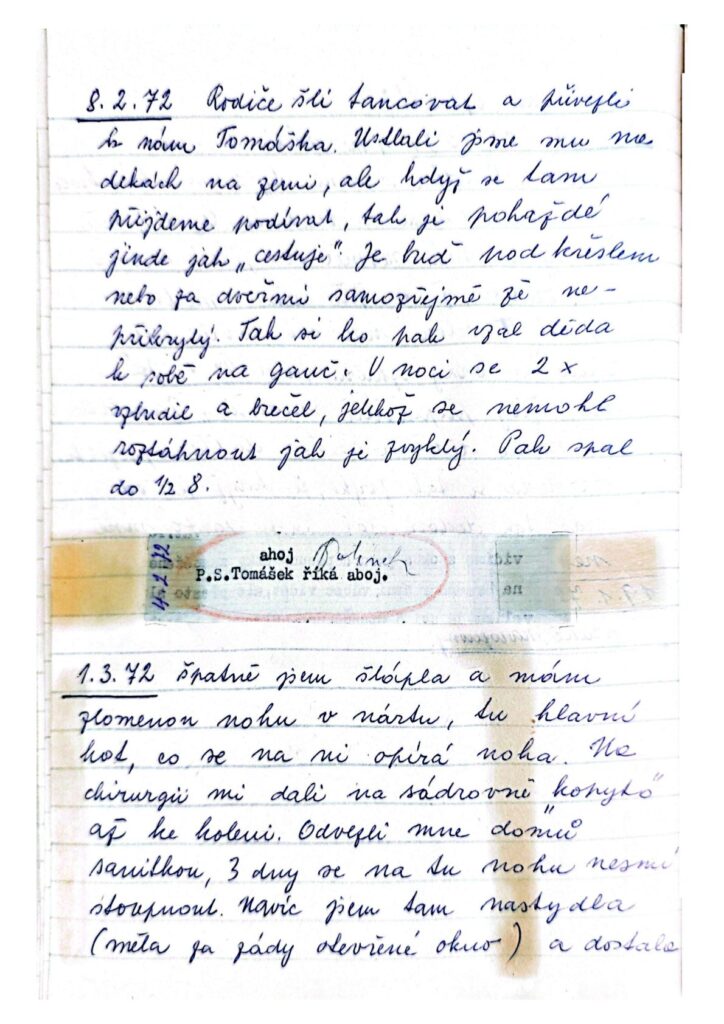 8.2.72 Rodiče šli tancovat a přivezli
k nám Tomáška. Ustlali jsme mu na
dekách na zemi, ale když se tam
přijdeme podívat, tak je pokaždé
jinde jak „cestuje“. Je buď pod křeslem
nebo za dveřmi samozřejmě že ne-
přikrytý. Tak si ho pak vzal děda
k sobě na gauč. V noci se 2 x
vzbudil a brečel, jelikož se nemohl
roztáhnout jak je zvyklý. Pak spal
do 1/2 8.
ahoj
P.S.Tomášek říká aboj.
1.3.72 špatně jsem šlápla a mám
zlomenou nohu v nártu, tu hlavní
kost, co se na ni opírá noha. Na
chirurgii mi dali na sádrovně „kopyto“
až ke koleni. Odvezli mne domů
sanitkou, 3 dny se na tu nohu nesmí
stoupnout. Navíc jsem tam nastydla
(měla za zády otevřené okno) a dostala